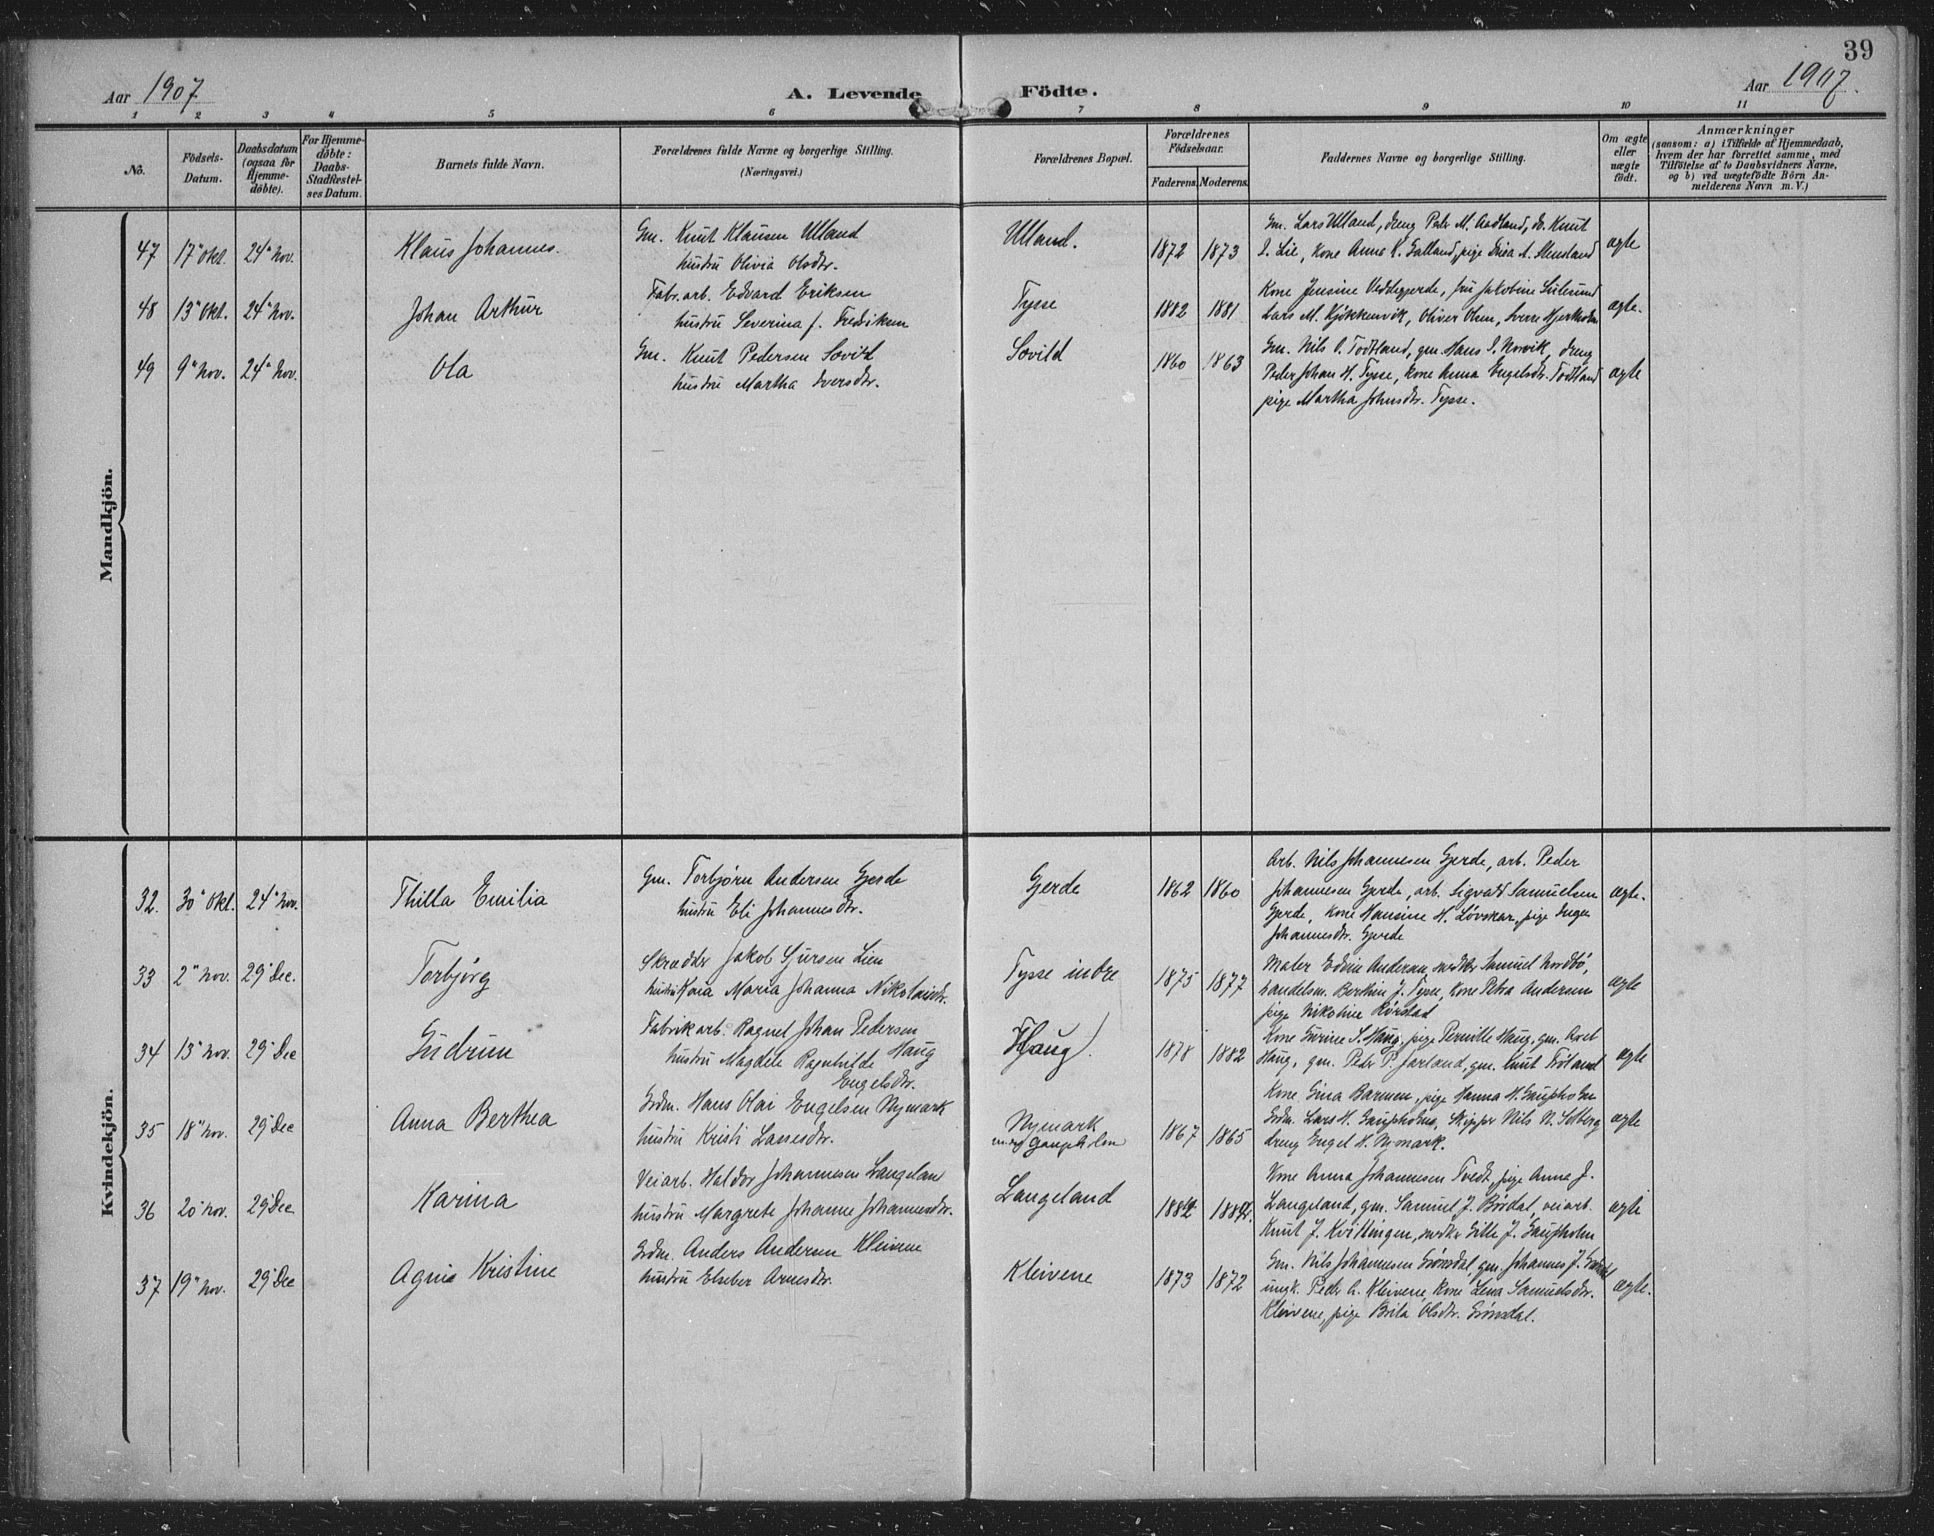 39
Aar 1907
A. Levende Födte.
Aar 1907.
1 2 3 4 5 6 7 8 9 10 11
No.
Födsels-
Datum.
Daabsdatum
(ogsaa for
Hjemme-
döbte).
For Hjemme-
döbte:
Daabs-
Stadfæstel-
ses Datum.
Barnets fulde Navn.
Forældrenes fulde Navne og borgerlige Stilling.
(Næringsvei.)
Forældrenes Bopæl.
Forældrenes
Födselsaar.
Faderens. Moderens.
Faddernes Navne og borgerlige Stilling.
Om ægte
eller
uægte
födt.
Anmærkninger
(saasom: a) i Tilfælde af Hjemmedaab,
hvem der har forrettet samme, med
Tilföielse af to Daabsvidners Navne,
og b) ved uægtefödte Börn An-
melderens Navn m. V.)
Mandkjön.
47 17" Okt. 24" Nov. Klaus Johannes.
Gm. Knut Klausen Ulland
hustru Olivia Olsdtr.
Ulland. 1872 1873
Gm. Lars Ulland, dreng Peder M. Aadland, do. Knut
I. Lie, Kone Anna K. Gatland, pige A. Stensland
ægte
48 13" Okt. 24" Nov. Johan Arthur
Fabr. arb. Edvard Eriksen
hustru Severina f. Fredriksen
Tysse 1882 1881
Kone Jensine Veddegjerde, fru Jakobine
Lars M. Kjökkenvik, Oliver Olsen, Sverre Hjertholm
ægte.
49 9" Nov. 24" Nov. Ola
Gm. Knut Pedersen Sævild
hustru Martha Iversdtr.
Sævild 1860 1863
Gm. Nils O. Todtland, gm. Hans I. Norvik, dreng
Peder Johan H. Tysse, Kone Anna Engelsdtr. Todtland
pige Martha Johnsdtr. Tysse.
ægte
Kvindekjön.
32. 30" Okt. 24" Nov. Thilla Emilia
Gm. Torbjörn Andersen Gjerde
hustru Eli Johannesdtr.
Gjerde 1862 1860
Arb. Nils Johannesen Gjerde, arb. Peder
Johannesen Gjerde, arb. Sigvald Samuelsen
Gjerde, Kone Hansine H. Lövskar, pige Inger
Johannesdtr. Gjerde
ægte.
33 2" Nov. 29" Dec. Torbjörg
Skrædder Jakob Sjursen Lien
hustru Maria Johanna Nikolaisdtr.
Tysse indre 1875 1877
Maler Edvin Andersen, snedker Samuel Nordbö,
handelsm. Berthin J. Tysse, Kone Petra Andersen
pige Nikoline Rörstad
ægte
34 13" Nov. 29" Dec Gudrun
Fabrikarb. Ragnel Johan Pedersen
Haug
hustru Magdele Ragnhilde
Engelsdtr.
Haug. 1878 1882
Kone Gurine S. Haug, pige Pernille Haug, gm. Axel
Haug, gm. Peder P. Jarland, gm. Knut Fröland
ægte
35 18" Nov. 29" Dec Anna Berthea
Grdm. Hans Olai Engelsen Nymark
hustru Kristi Larsdtr.
Nymark
Gaupholm
1867 1865
Kone Gina Barmen, pige Hanna H. Gaupholm
Grdm. Lars H. Gaupholm, Skipper Nils N. Solberg
dreng Engel H. Nymark.
ægte
36 20" Nov. 29" Dec Karina
Veiarb. Haldor Johannesen Langeland
hustru Margrete Johanne Johannesdtr.
Langeland
Kone Anna Johannesen Tvedt, pige Anna J.
Langeland, gm. Samuel J. Bördal, veiarb.
Knut J. Kvittingen, snedker Gille J. Gaupholm
ægte
37 19" Nov. 29" Dec Agnes Kristine
Grdm. Anders Andersen Kleivene
hustru Elseber Arnesdtr.
Kleivene 1873 1872
Gm. Nils Johannesen Grönsdal, gm. Johannes J.
ungk. Peder A. Kleivene, Kone Lena Samuelsdtr.
Kleivene, pige Brita Olsdtr. Grönsdal.
ægte.